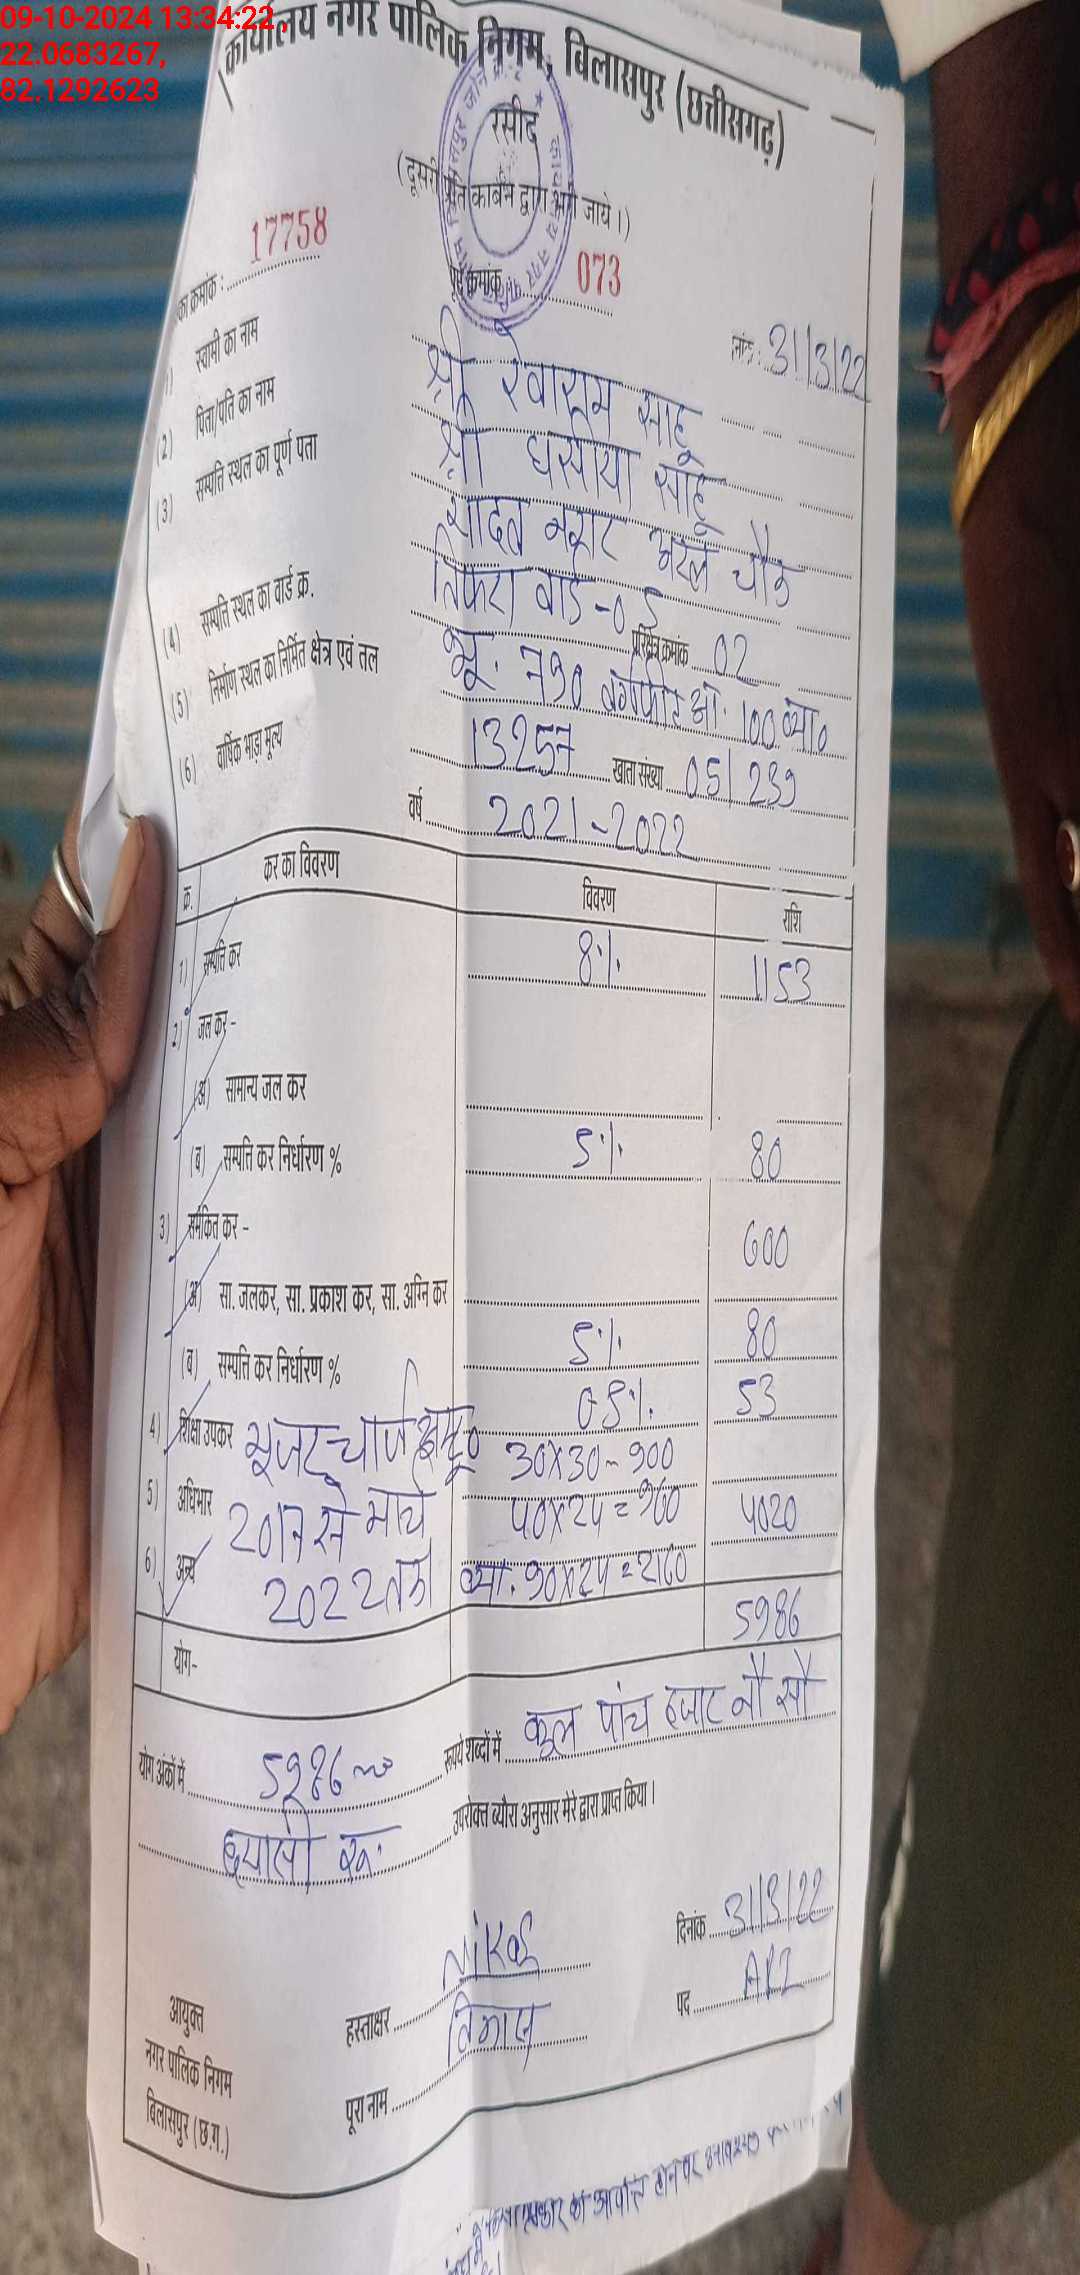 09-10-2024 13:34:22,
22.0683267,
82.1292623
कार्यालय नगर पालिक निगम, बिलासपुर (छत्तीसगढ़)
रसीद
(दूसरी प्रति कार्बन द्वारा भरी जाये।)
का क्रमांक : 17758
पृष्ठ क्रमांक 073
31/3/22
स्वामी का नाम श्री रेवाराम साहू
(2) पिता/पति का नाम श्री घसीया साहू
(3) सम्पत्ति स्थल का पूर्ण पता यादव नगर चौक
तिफरा वार्ड-05
(4) सम्पत्ति स्थल का वार्ड क्र. परिक्षेत्र क्रमांक 02
(5) निर्माण स्थल का निर्मित क्षेत्र एवं तल भू. 790 वर्गफीट औ. 100 व्या०
(6) वार्षिक भाड़ा मूल्य 13257 खाता संख्या 05/239
वर्ष 2021-2022
क्र. कर का विवरण विवरण राशि
1) सम्पत्ति कर 8% 1153
2) जल कर -
(अ) सामान्य जल कर
(ब) सम्पत्ति कर निर्धारण % 5% 80
3) समेकित कर - 600
(अ) सा. जलकर, सा. प्रकाश कर, सा. अग्नि कर
(ब) सम्पत्ति कर निर्धारण % 5% 80
4) शिक्षा उपकर 0.5% 53
यूजर चार्ज 30x30-900
5) अधिभार 2017 से मार्च 40x24=960 4020
6) अन्य 2022 तक व्या. 90x24=2160
योग- 5986
योग अंकों में 5986 रूपये शब्दों में कूल पांच हजार नौ सौ
छयासी रू. उपरोक्त ब्यौरा अनुसार मेरे द्वारा प्राप्त किया।
दिनांक 31/3/22
आयुक्त हस्ताक्षर पद ARI
नगर पालिक निगम
बिलासपुर (छ.ग.) पूरा नाम विकास